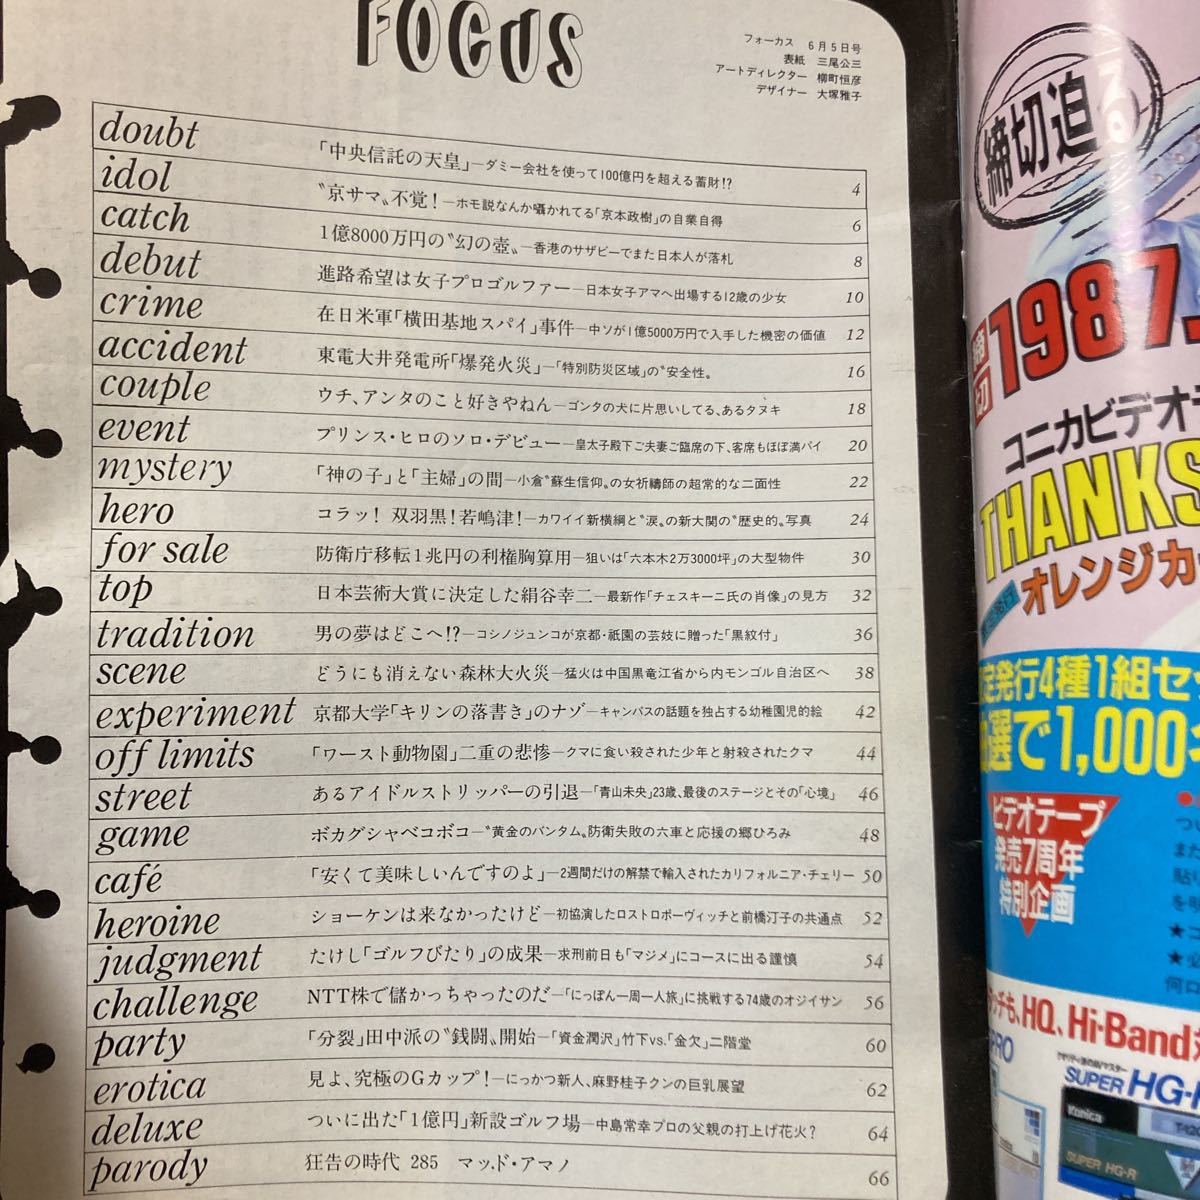 FOCUS
フォーカス 6月5日号
表紙 三尾公三
アートディレクター 柳町恒彦
デザイナー 大塚雅子
doubt 「中央信託の天皇」—ダミー会社を使って100億円を超える蓄財!? 4
idol 〝京サマ〟不覚！—ホモ説なんか囁かれてる「京本政樹」の自業自得 6
catch 1億8000万円の〝幻の壺〟—香港のサザビーでまた日本人が落札 8
debut 進路希望は女子プロゴルファー—日本女子アマへ出場する12歳の少女 10
crime 在日米軍「横田基地スパイ」事件—中ソが1億5000万円で入手した機密の価値 12
accident 東電大井発電所「爆発火災」—「特別防災区域」の〝安全性〟 16
couple ウチ、アンタのこと好きやねん—ゴンタの犬に片思いしてる、あるタヌキ 18
event プリンス・ヒロのソロ・デビュー—皇太子殿下ご夫妻ご臨席の下、客席もほぼ満パイ 20
mystery 「神の子」と「主婦」の間—小倉〝蘇生信仰〟の女祈禱師の超常的な二面性 22
hero コラッ！双羽黒！若嶋津！—カワイイ新横綱と〝涙〟の新大関の〝歴史的〟写真 24
for sale 防衛庁移転1兆円の利権胸算用—狙いは「六本木2万3000坪」の大型物件 30
top 日本芸術大賞に決定した絹谷幸二—最新作「チェスキーニ氏の肖像」の見方 32
tradition 男の夢はどこへ!?—コシノジュンコが京都・祇園の芸妓に贈った「黒紋付」 36
scene どうにも消えない森林大火災—猛火は中国黒竜江省から内モンゴル自治区へ 38
experiment 京都大学「キリンの落書き」のナゾ—キャンパスの話題を独占する幼稚園児的絵 42
off limits 「ワースト動物園」二重の悲惨—クマに食い殺された少年と射殺されたクマ 44
street あるアイドルストリッパーの引退—「青山未央」23歳、最後のステージとその「心境」 46
game ボカグシャベコボコ—〝黄金のバンタム〟防衛失敗の六車と応援の郷ひろみ 48
café 「安くて美味しいんですのよ」—2週間だけの解禁で輸入されたカリフォルニア・チェリー 50
heroine ショーケンは来なかったけど—初協演したロストロポーヴィッチと前橋汀子の共通点 52
judgment たけし「ゴルフびたり」の成果—求刑前日も「マジメ」にコースに出る謹慎 54
challenge NTT株で儲かっちゃったのだ—「にっぽん一周一人旅」に挑戦する74歳のオジイサン 56
party 「分裂」田中派の〝銭闘〟開始—「資金潤沢」竹下vs.「金欠」二階堂 60
erotica 見よ、究極のGカップ！—にっかつ新人、麻野桂子クンの巨乳展望 62
deluxe ついに出た「1億円」新設ゴルフ場—中島常幸プロの父親の打上げ花火？ 64
parody 狂告の時代 285 マッド・アマノ 66
締切迫る
締切 1987
コニカビデオテ
THANKS
オレンジカ
定発行4種1組セ
選で1,000名
ビデオテープ
発売7周年
特別企画
つい
また
貼り
を明
★コ
★必
何ロ
HQ、Hi-Band
PRO
SUPER HG-
Konica
SUPER HG-R
T-120